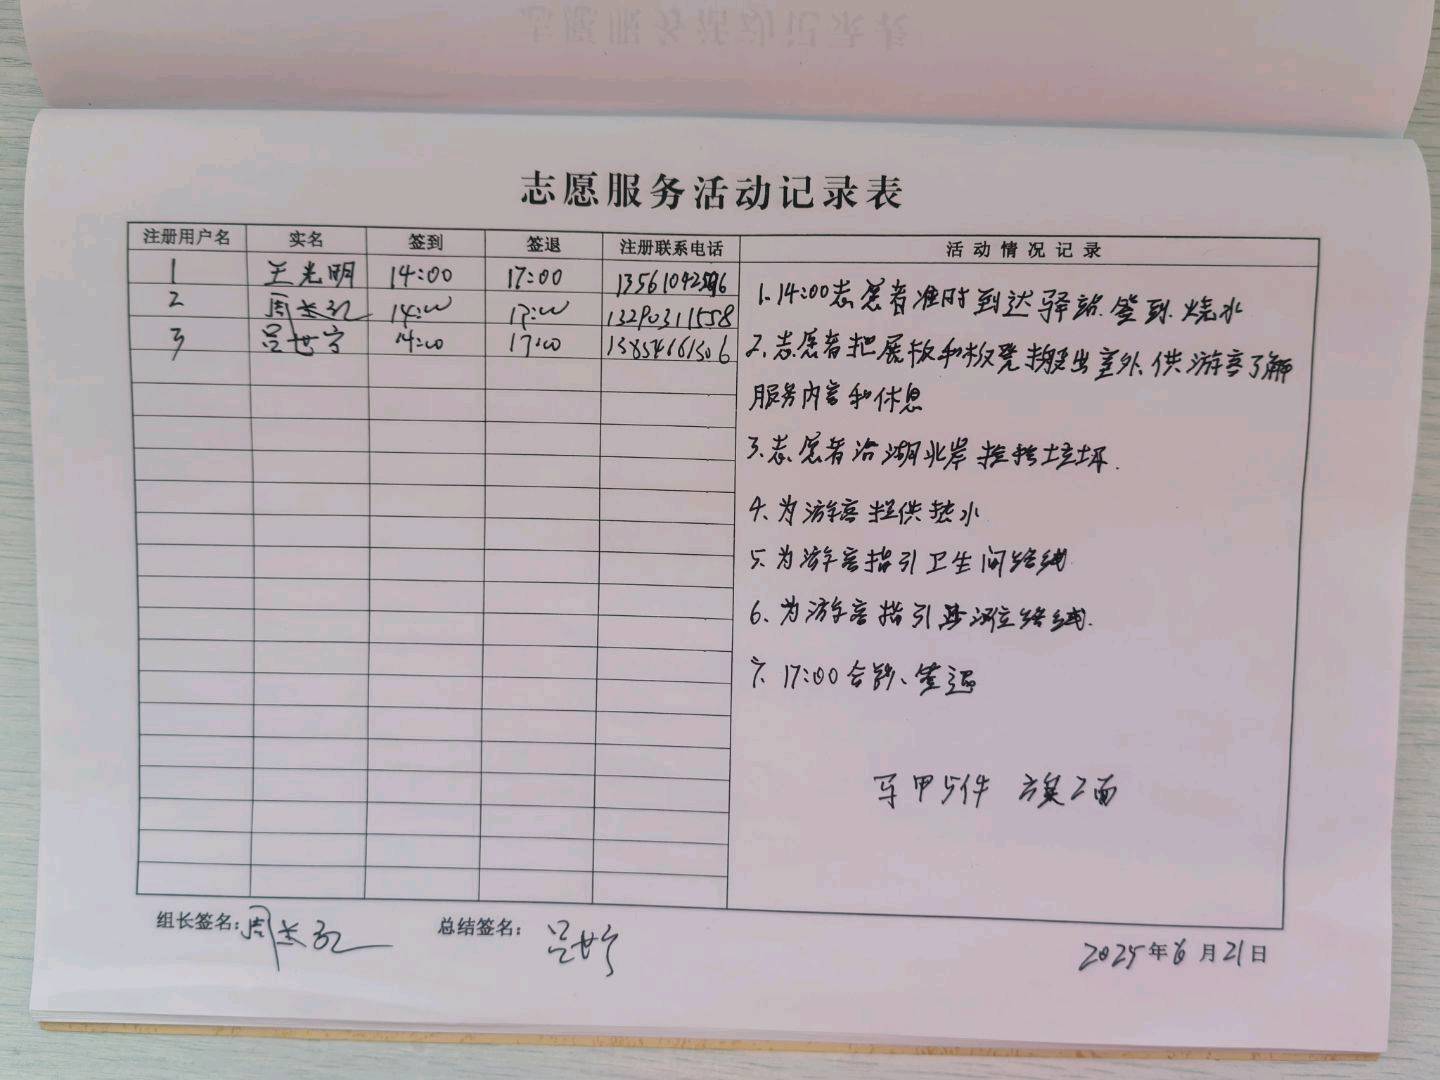 志愿服务活动记录表
注册用户名 实名 签到 签退 注册联系电话 活动情况记录
1 王光明 14:00 17:00
2 周 14:00 17:00 13290311558
3 吕世宁 14:00 17:00 15854161506
1. 14:00志愿者准时到达驿站.签到.烧水
2、志愿者把展板和板凳搬出室外、供游客了解
服务内容和休息
3、志愿者沿湖北岸捡拾垃圾.
4、为游客提供热水
5、为游客指引卫生间路线
6、为游客指引路线.
7、17:00合影、签退
马甲5件 旗2面
组长签名:周
总结签名: 吕世宁
2025年6月21日